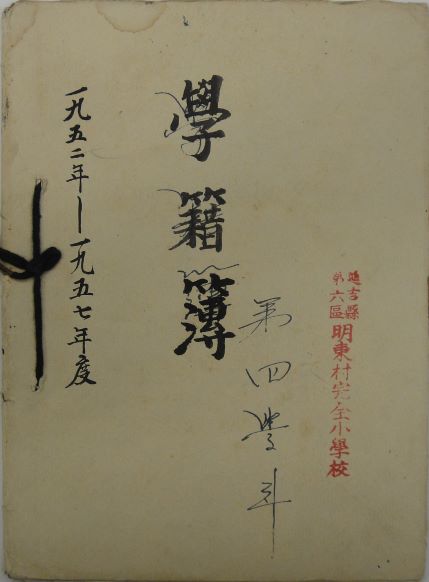 延吉縣
第六區
明東村完全小學校
第四
學籍簿
一九五二年—一九五七年度